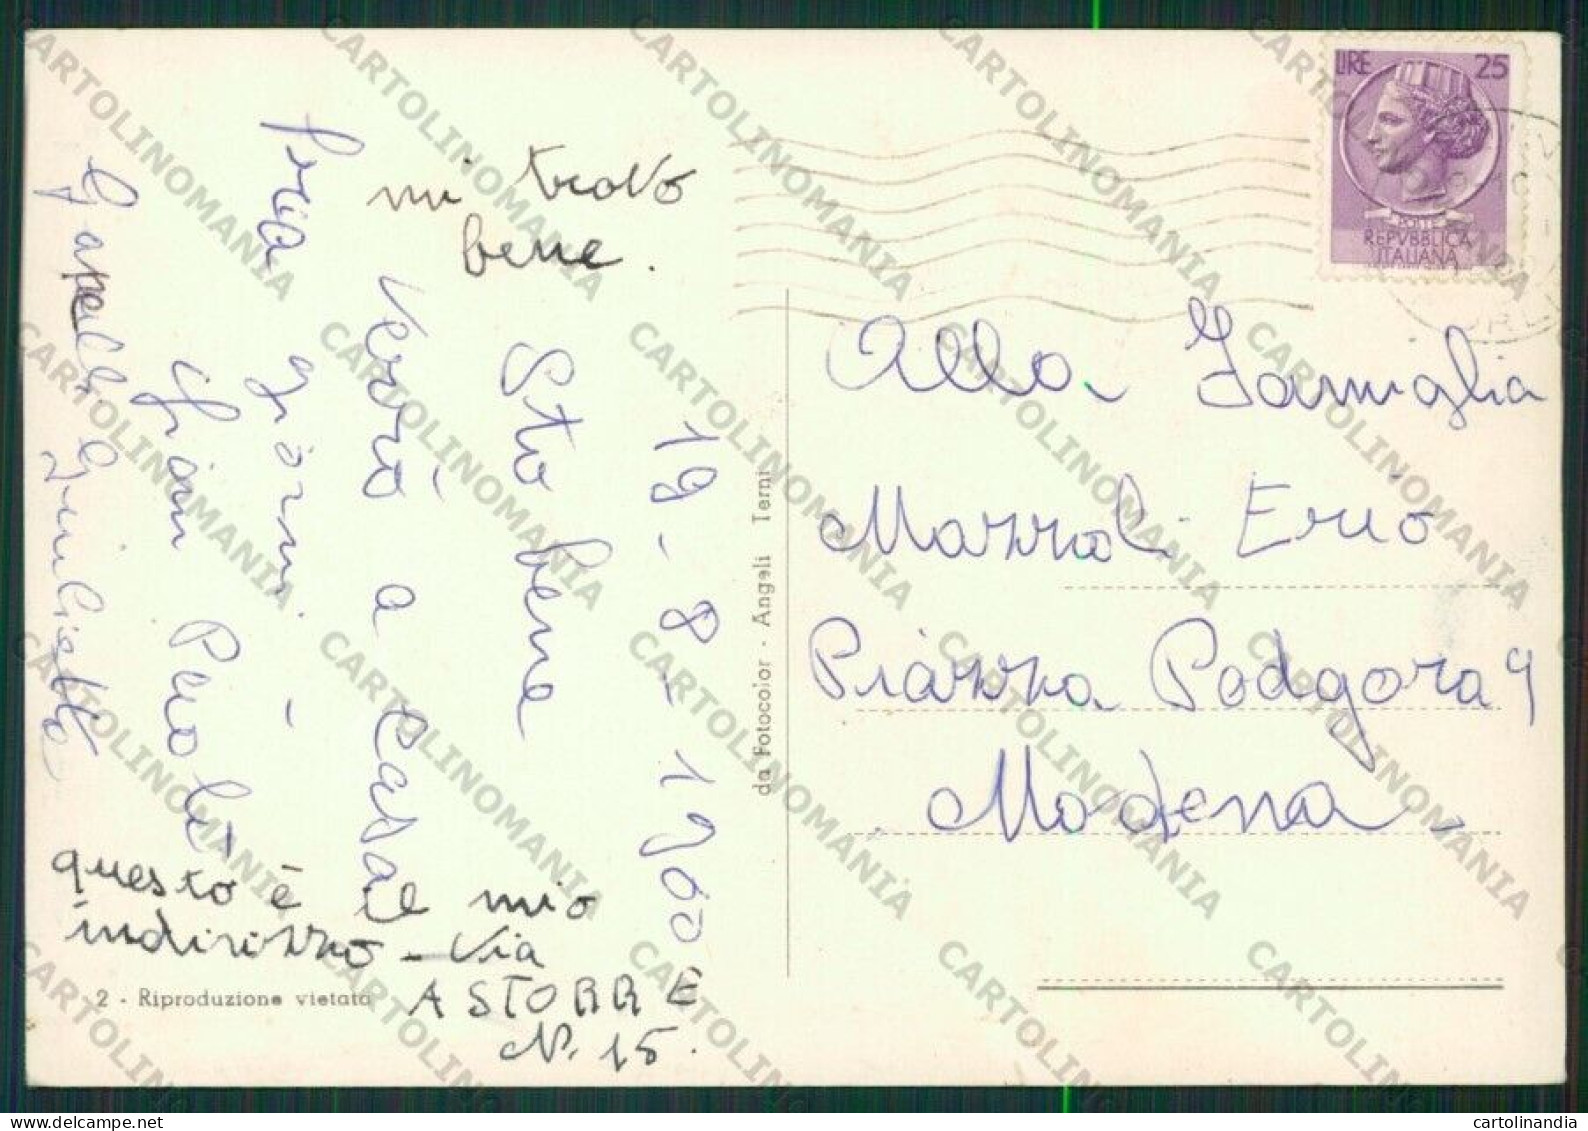 LIRE 25
POSTE
REPVBBLICA
ITALIANA
mi trovo
bene.
19-8-1960
Sto bene
verrò a casa
fra giorni -
Gian Paolo
e Giulietta
questo è il mio
indirizzo - Via
ASTORRE
N. 15.
2 - Riproduzione vietata
da Fotocolor - Angeli Terni
Alla Famiglia
Mazzoli Erio
Piazza Podgora 9
Modena
CARTOLINOMANIA
cartolinandia